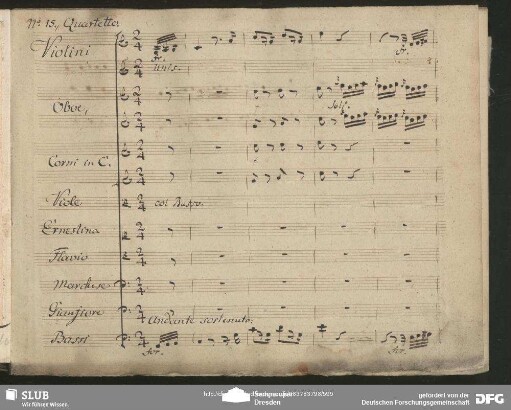 No. 15. Quartetto.
Violini
for.
Unis.
for.
Oboe,
Soli.
Corni in C.
Viole
col Basso.
Ernestina
Flavio
Marchese
Gianfiore
Andante sostenuto.
Bassi
for.
for.
SLUB
Wir führen Wissen.
Dresden
gefördert von der
Deutschen Forschungsgemeinschaft
DFG